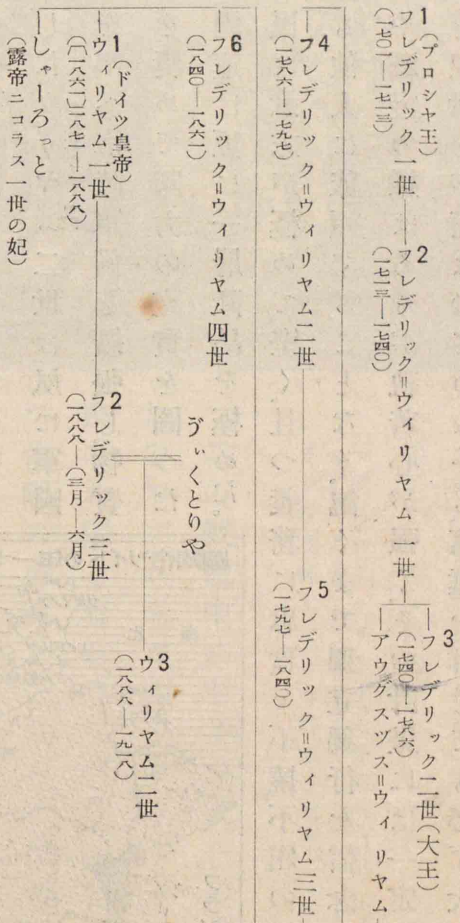 1
(プロシャ王)
フレデリック一世
(一七〇一―一七一三)
2
フレデリック=ウィリヤム一世
(一七一三―一七四〇)
3
フレデリック二世(大王)
(一七四〇―一七八六)
アウグスヅス=ウィリヤム
4
フレデリック=ウィリヤム二世
(一七八六―一七九七)
5
フレデリック=ウィリヤム三世
(一七九七―一八四〇)
6
フレデリック=ウィリヤム四世
(一八四〇―一八六一)
1
(ドイツ皇帝)
ウィリヤム一世
(〔一八六一〕一八七一―一八八八)
2
フレデリック三世
(一八八八―(三月―六月)
ゔぃくとりや
3
ウィリヤム二世
(一八八八―一九一八)
しゃーろっと
(露帝ニコラス一世の妃)